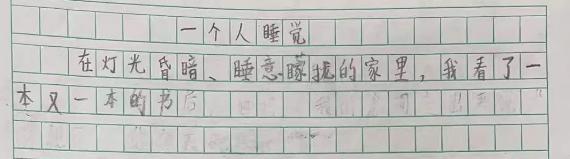 一个人睡觉
在灯光昏暗、睡意朦拢的家里，我看了一
本又一本的书后